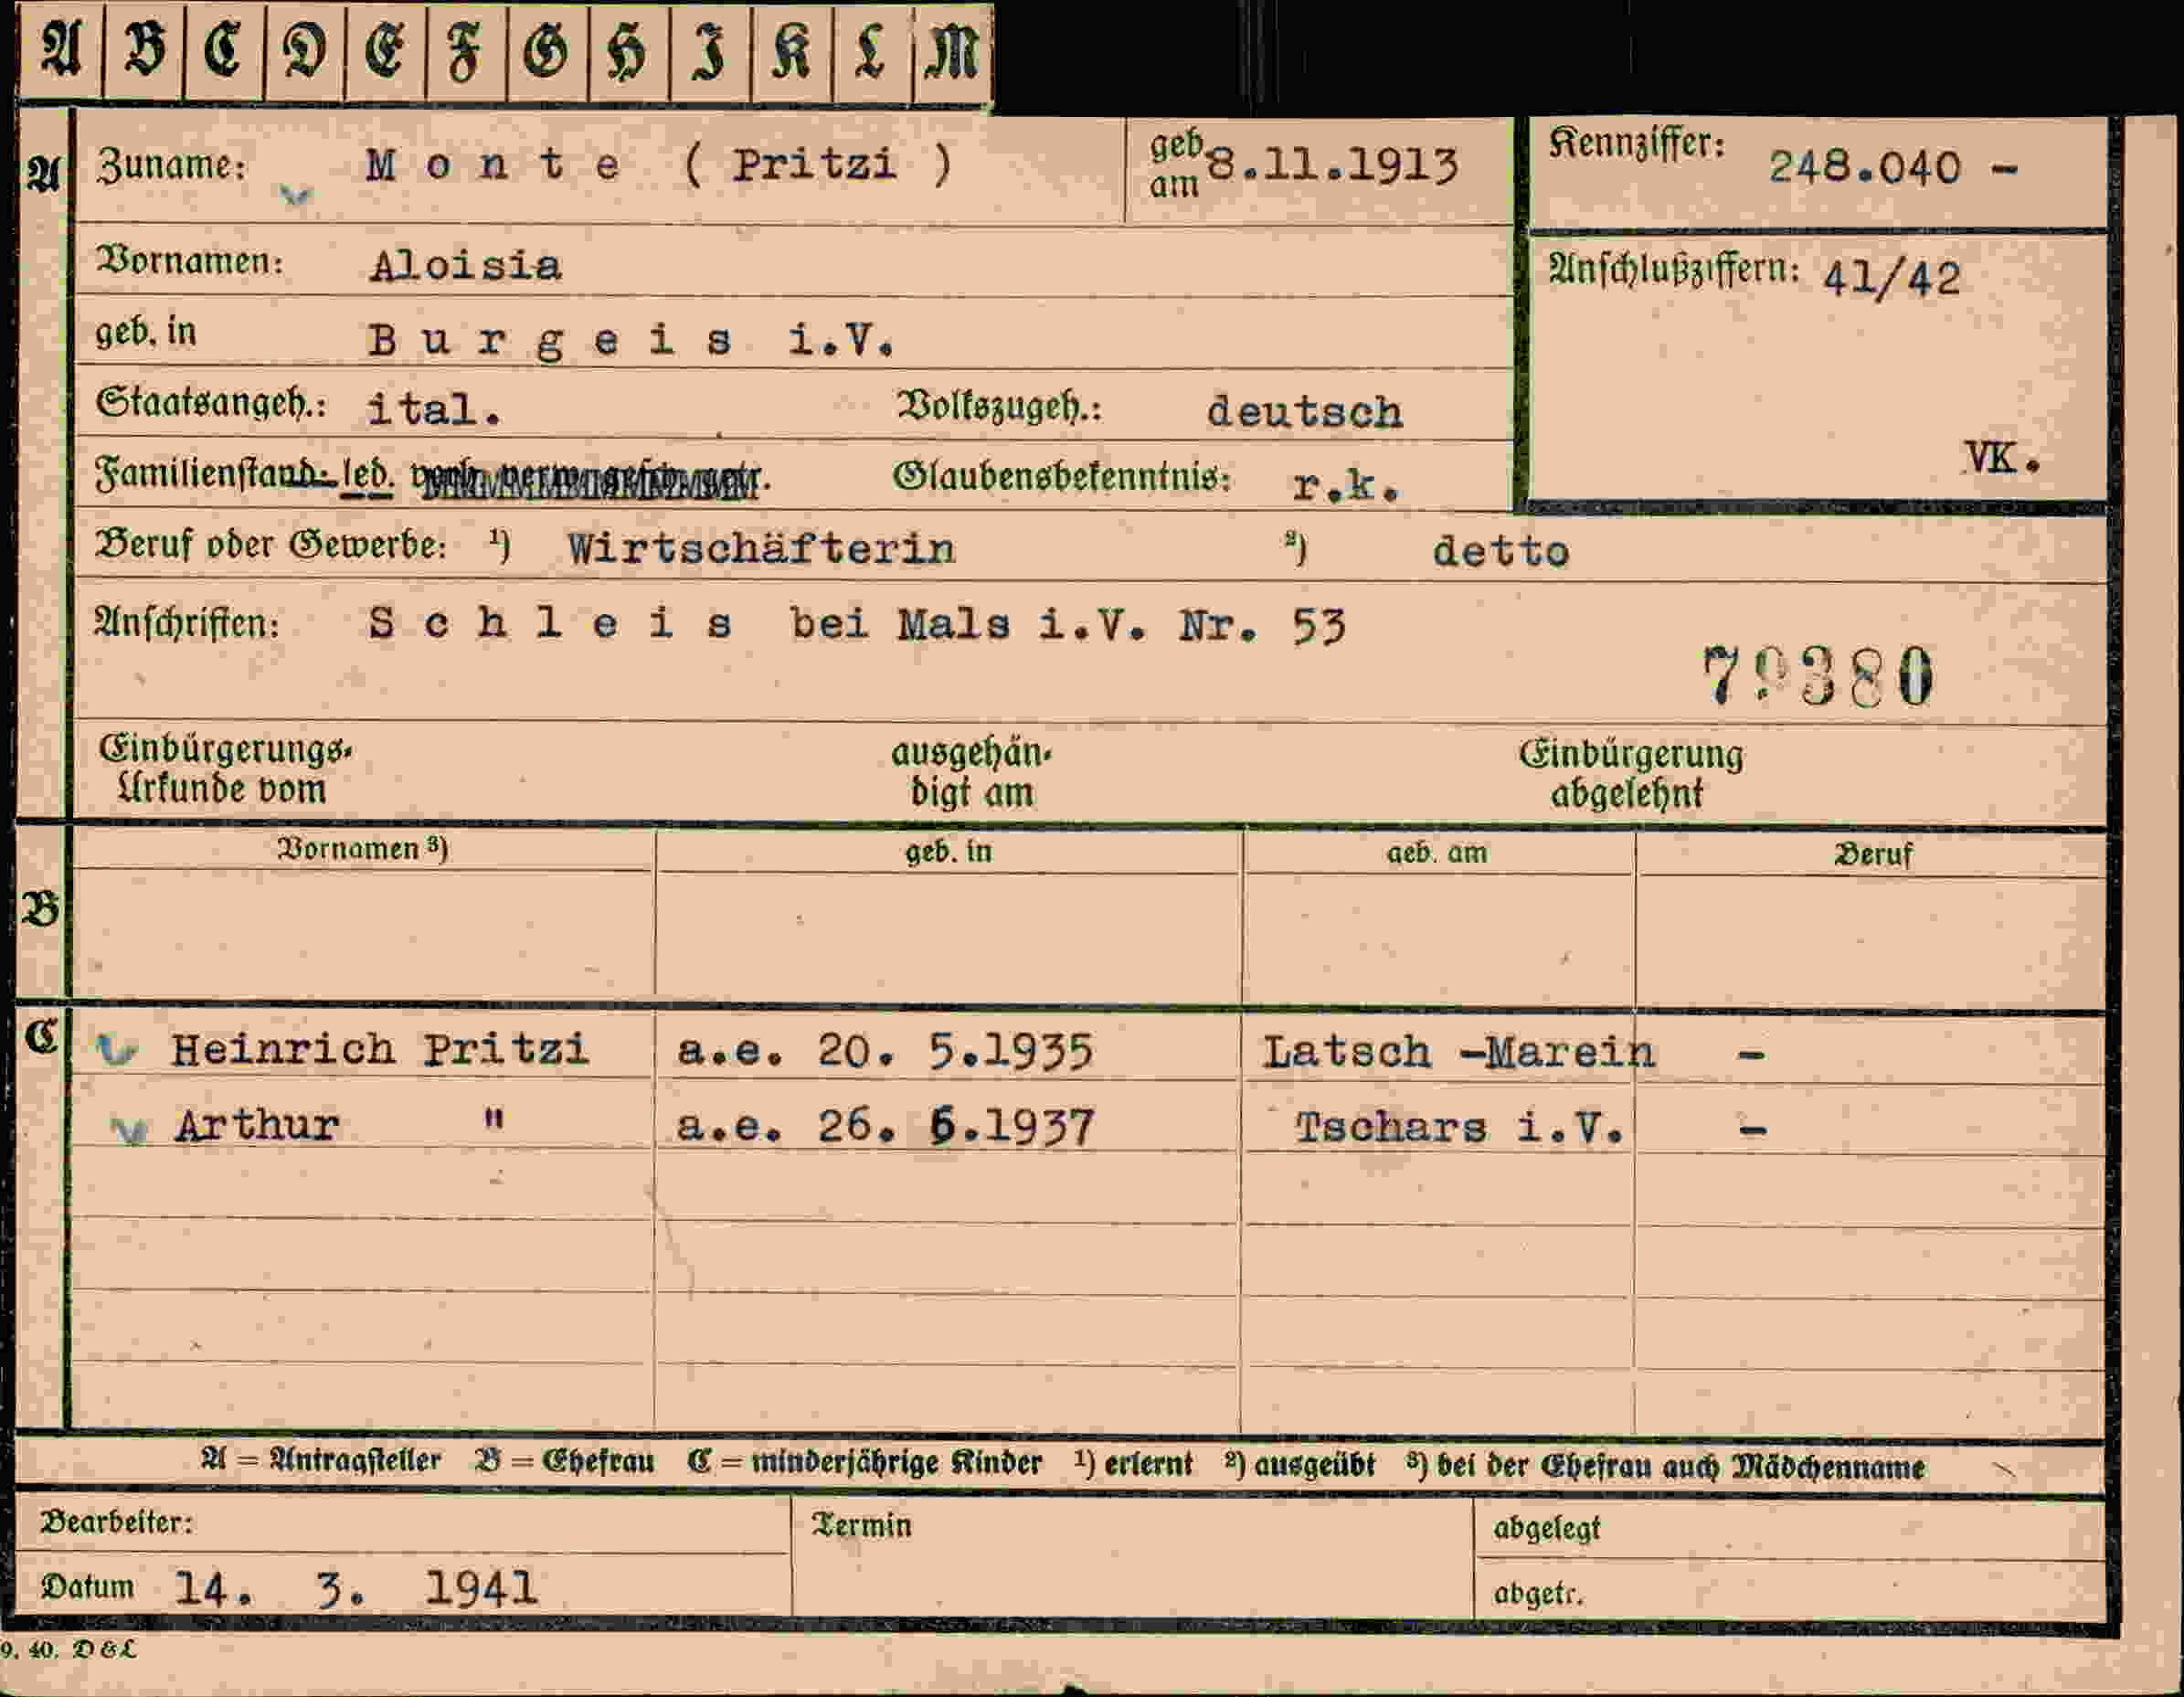 A B C D E F G H I K L M
A Zuname: M o n t e ( Pritzi ) geb. am 8.11.1913 Kennziffer: 248.040 -
Vornamen: Aloisia Anschlußziffern: 41/42
geb. in B u r g e i s i.V.
Staatsangeh.: ital. Volkszugeh.: deutsch
VK.
Familienstand: led. Glaubensbekenntnis: r.k.
Beruf oder Gewerbe: ¹) Wirtschäfterin ²) detto
Anschriften: S c h l e i s bei Mals i.V. Nr. 53
79380
Einbürgerungs- ausgehän- Einbürgerung
Urkunde vom digt am abgelehnt
Vornamen ³) geb. in geb. am Beruf
B
C Heinrich Pritzi a.e. 20. 5.1935 Latsch -Marein -
Arthur " a.e. 26. 6.1937 Tschars i.V. -
A = Antragsteller B = Ehefrau C = minderjährige Kinder ¹) erlernt ²) ausgeübt ³) bei der Ehefrau auch Mädchenname
Bearbeiter: Termin abgelegt
Datum 14. 3. 1941 abgetr.
9. 40. D & L